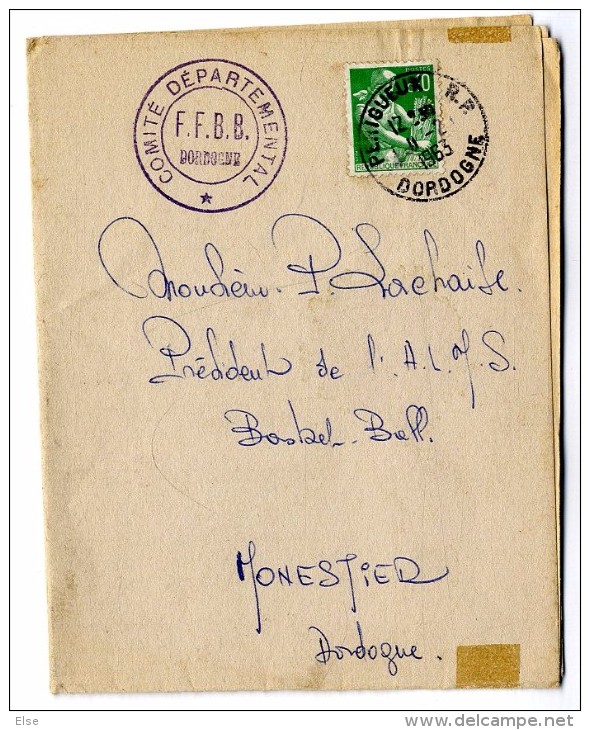 COMITÉ DÉPARTEMENTAL
F.F.B.B.
DORDOGNE
POSTES
REPUBLIQUE FRANCAISE
PERIGUEUX R.P.
1963
DORDOGNE
Monsieur P. Lachaise.
Président de l'A.L.M.S.
Basket-Ball.
MONESTIER
Dordogne.
Else
www.delcampe.net